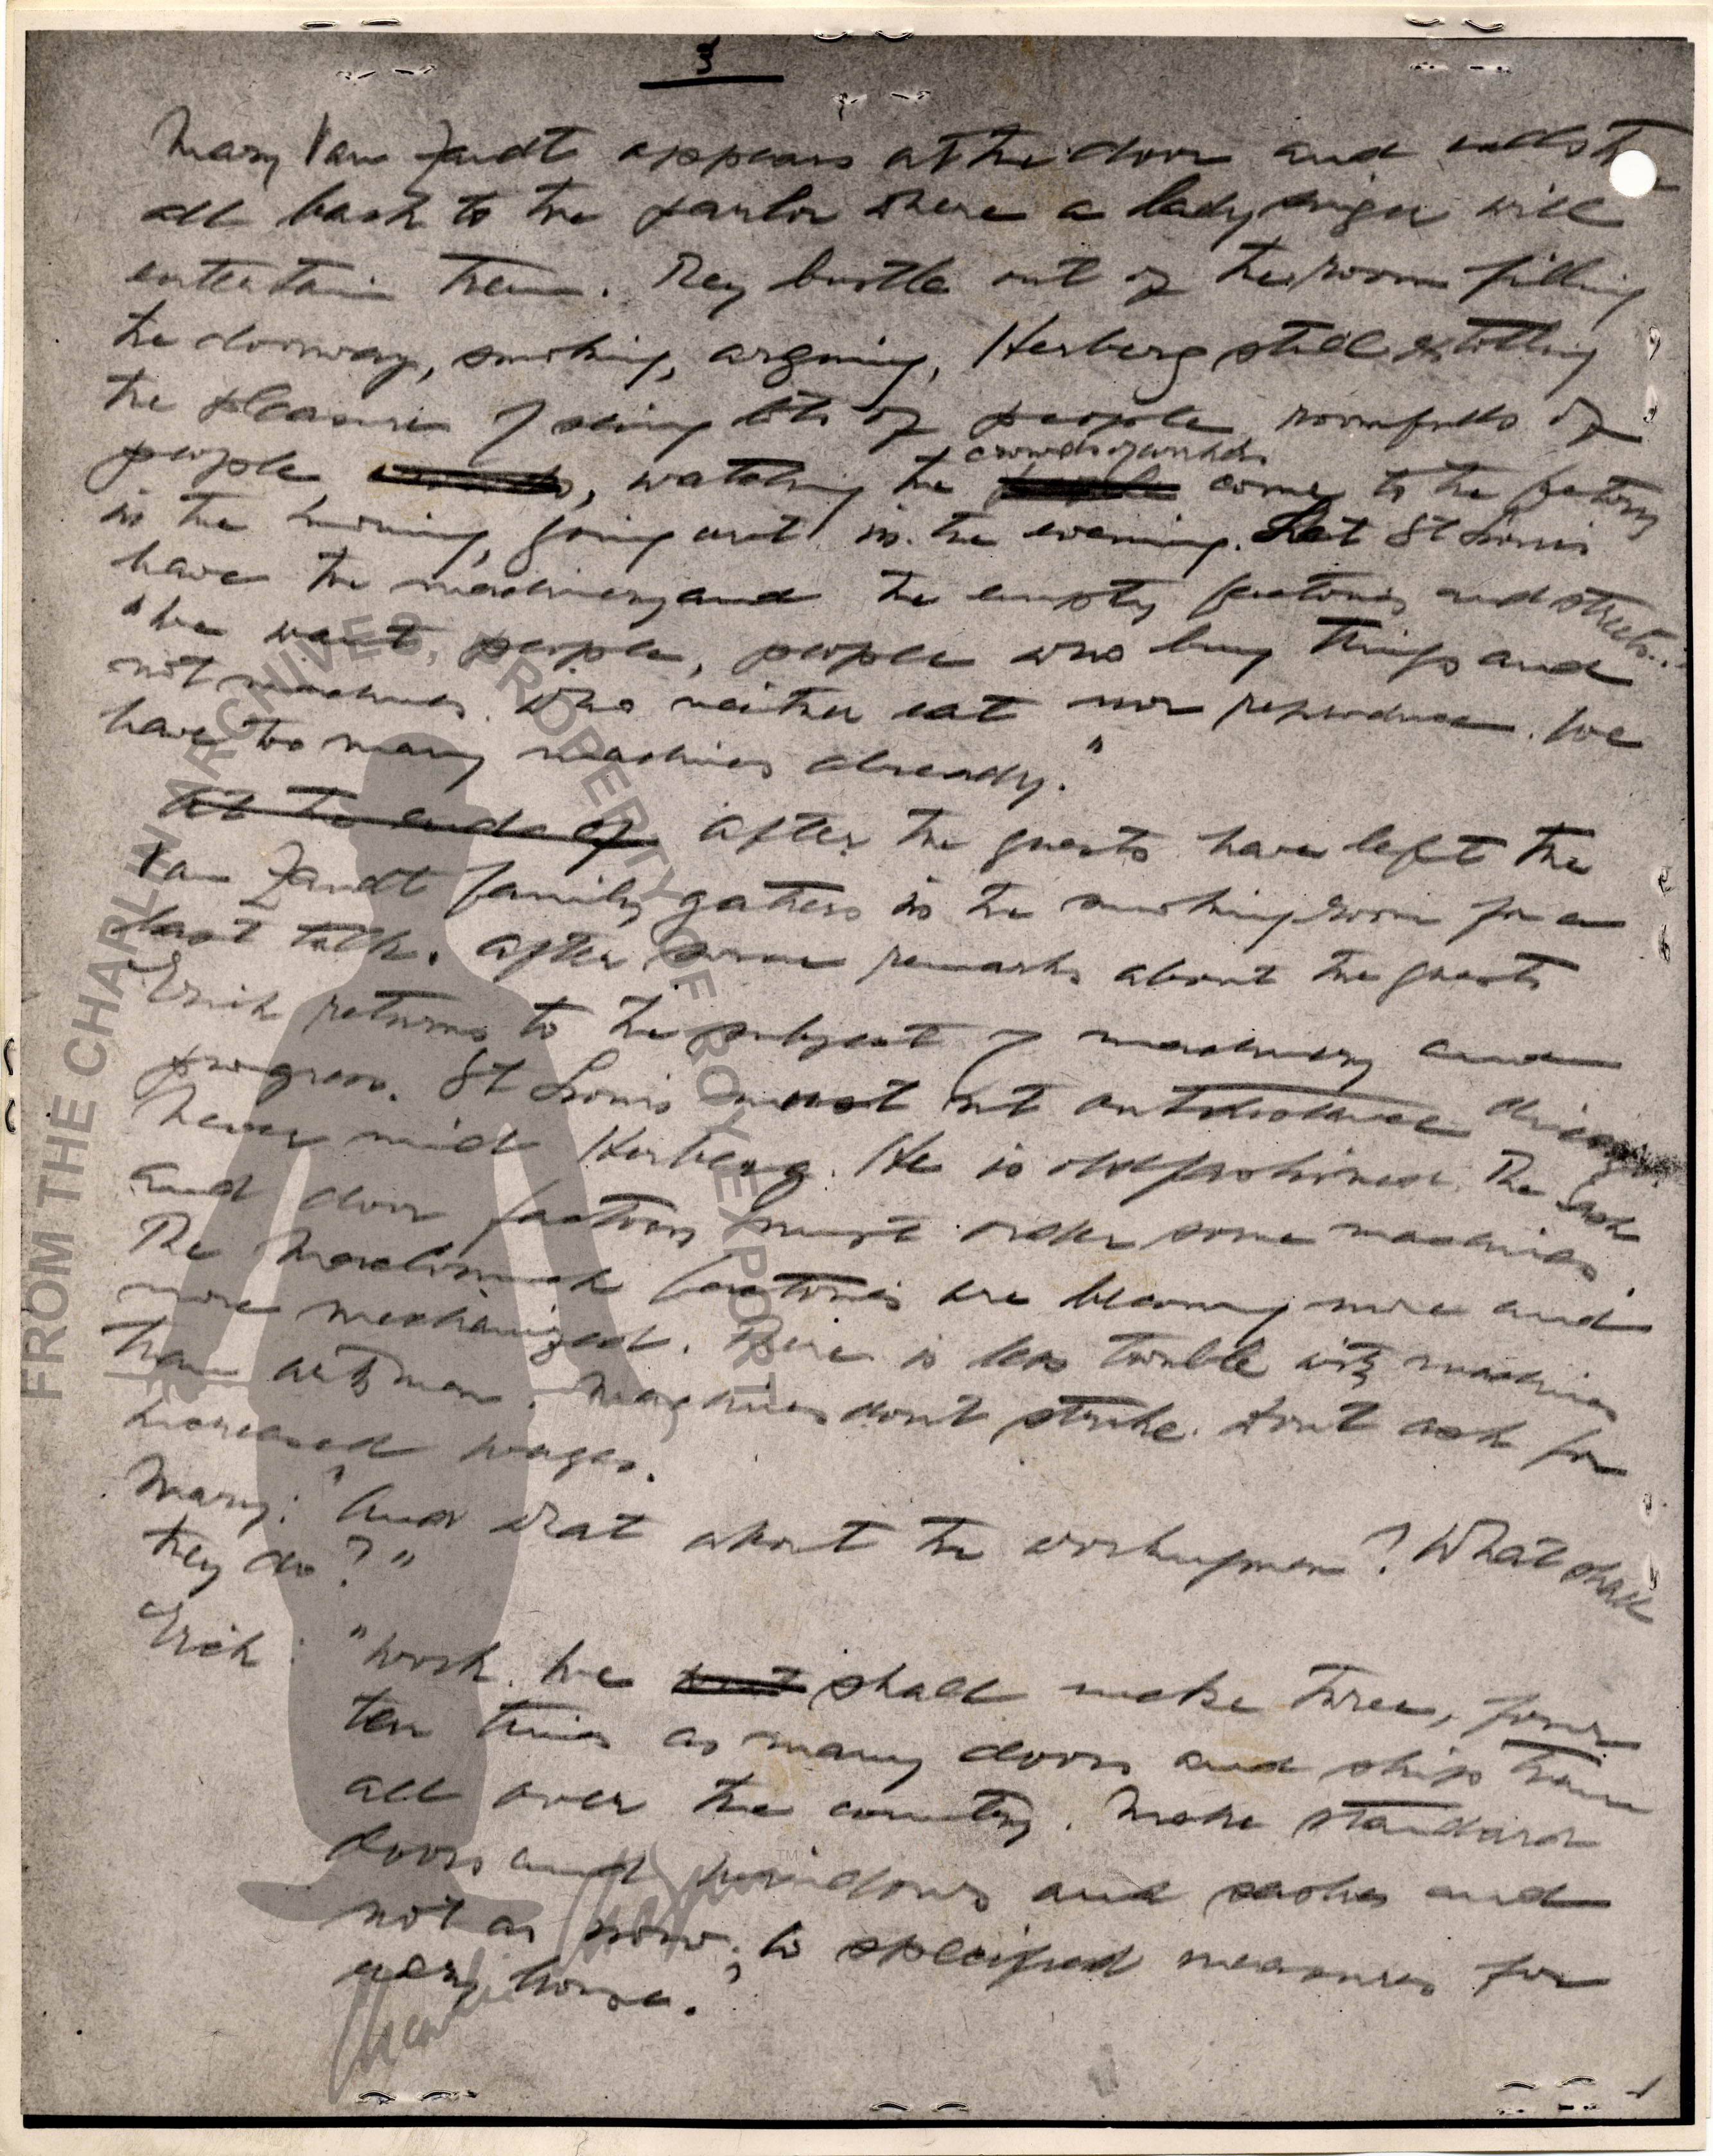 3
Mary Van Zandt appears at the door and calls
all back to the parlor where a lady singer will
entertain them. They bustle out of the room filling
the doorway, smoking, arguing, Herberg still extolling
the pleasure of seeing lots of people roomfulls of
crowds of workers
people, watching the come to the factory
in the morning, going out in the evening. Let St Louis
have the machinery and the empty factories and streets..
"We want people, people who buy things and
not machines who neither eat nor reproduce. We
have too many machines already."
At the end of After the guests have left the
Van Zandt family gathers in the smoking room for a
last talk. After some remarks about the guests
Erich returns to the subject of machinery and
progress. St Louis must not outdistance Chicago.
Never mind Herberg. He is oldfashioned. The Sash
and door factory must order some machines.
The MacCormick factories are becoming more and
more mechanized. There is less trouble with machines
than with men. Machines dont strike. Dont ask for
increased wages.
Mary: "And what about the workingmen? What shall
they do?"
Erich: "Work. We shall make three, four
ten times as many doors and ship them
all over the country. Make standard
doors and windows and sashes and
not as now, to specified measures for
every house."
FROM THE CHAPLIN ARCHIVES, PROPERTY OF ROY EXPORT
Charlie Chaplin
TM